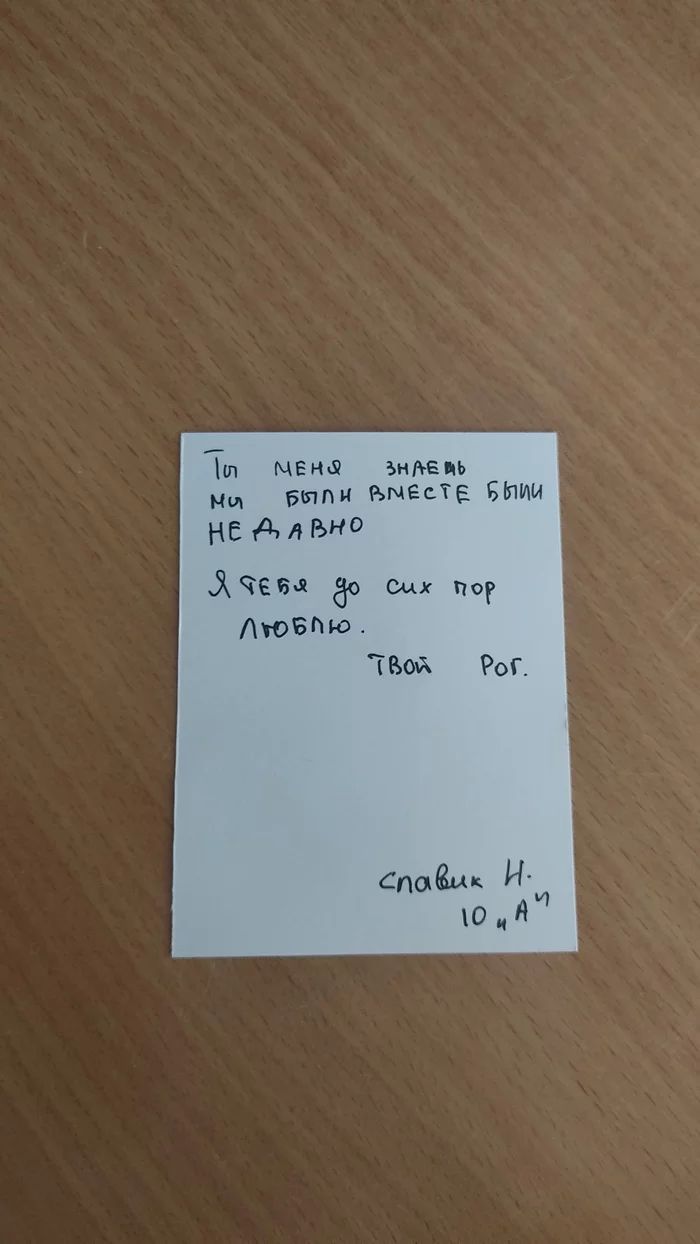 Ты меня знаешь
мы были вместе были
не давно
Я тебя до сих пор
люблю.
твой Рог.
Славик Н.
10 „А"